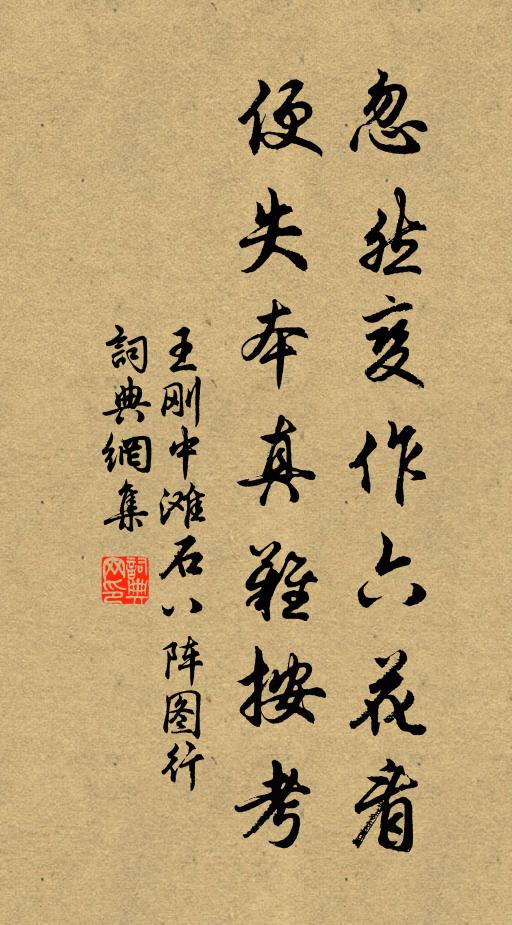 忽然变作六花看
便失本真难按考
王刚中滩石八阵图行
詞典網集
詞典网印